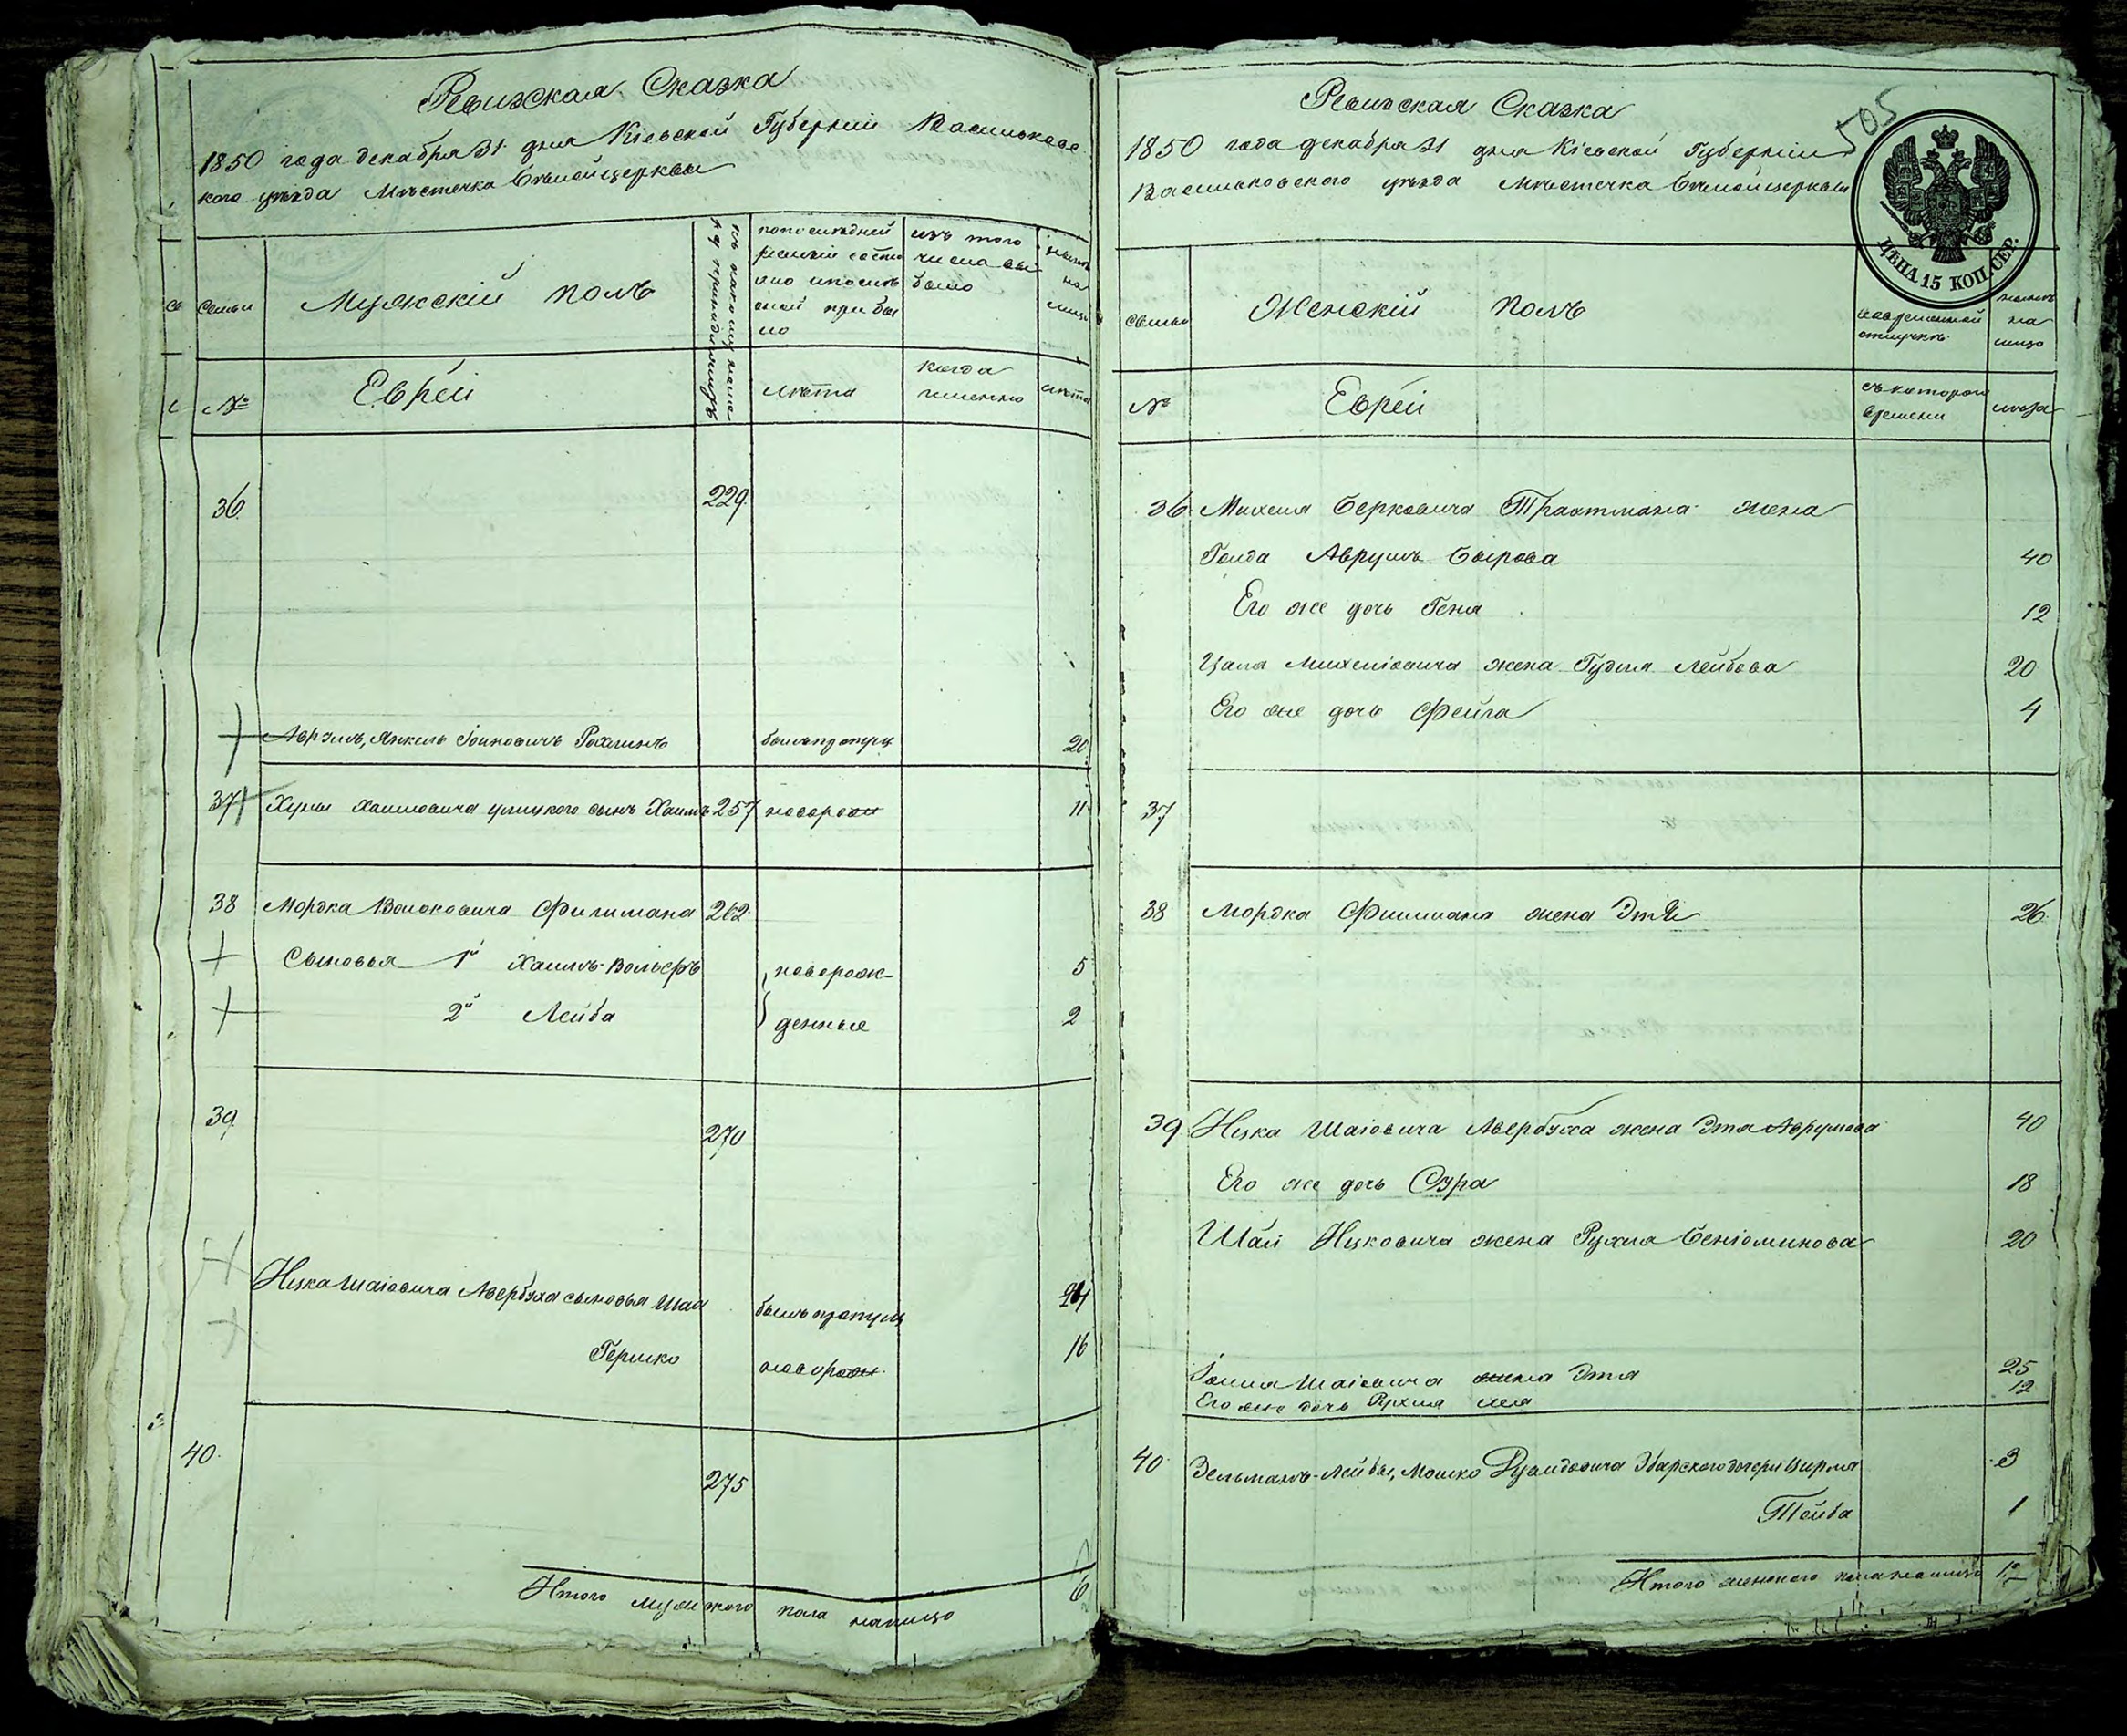 Ревизская Сказка
1850 года декабря 31 дня Кіевской Губерніи Васильковс
кого уѣзда Мѣстечка Бѣлойцеркви
Семьи
Мужскій полъ
по послѣдней
ревизіи состо
яло и послѣ
оной при бы
ло
изъ того
числа вы
было
нынѣ
на
лицо
№
Евреи
лѣта
когда
именно
лѣта
36
229
Аврумъ, Янкель Рохлинъ
былъ пропущ
20
37
Хаимовича сынъ Хаимъ
257
новорож
11
38
Мордка Волковича Фишмана
262
Сыновья 1й Хаимъ-Вольфъ
новорож-
5
2й Лейба
денные
2
39
270
Ицка Шаіовича Авербуха сыновья Шая
былъ пропущ
Гершко
новорож
16
40
275
Итого мужского пола налицо
6
Ревизская Сказка
505
1850 года декабря 31 дня Кіевской Губерніи
Васильковского уѣзда Мѣстечка Бѣлойцеркви
ЦѢНА 15 КОП. СЕР.
Семьи
Женскій полъ
во временной
отлучкѣ
нынѣ
на
лицо
№
Евреи
съ котораго
времени
лѣта
36
Михеля Берковича Трахтмана жена
Голда Аврумъ Бѣрова
40
Его же дочь Геня
12
Цаля Михеліовича жена Гудля Лейбова
20
Его же дочь Фейга
4
37
38
Мордка Фишмана жена Этля
26
39
Ицка Шаіовича Авербуха жена Эта Аврумова
40
Его же дочь Сура
18
Шаи Ицковича жена Рухля Беніоминова
20
Шаіовича жена Этя
25
Его же дочь Рухля Лея
12
40
Зельманъ-Лейбы, Мошко Збарского дочери Цирля
3
Тойба
1
Итого женского пола налицо
12